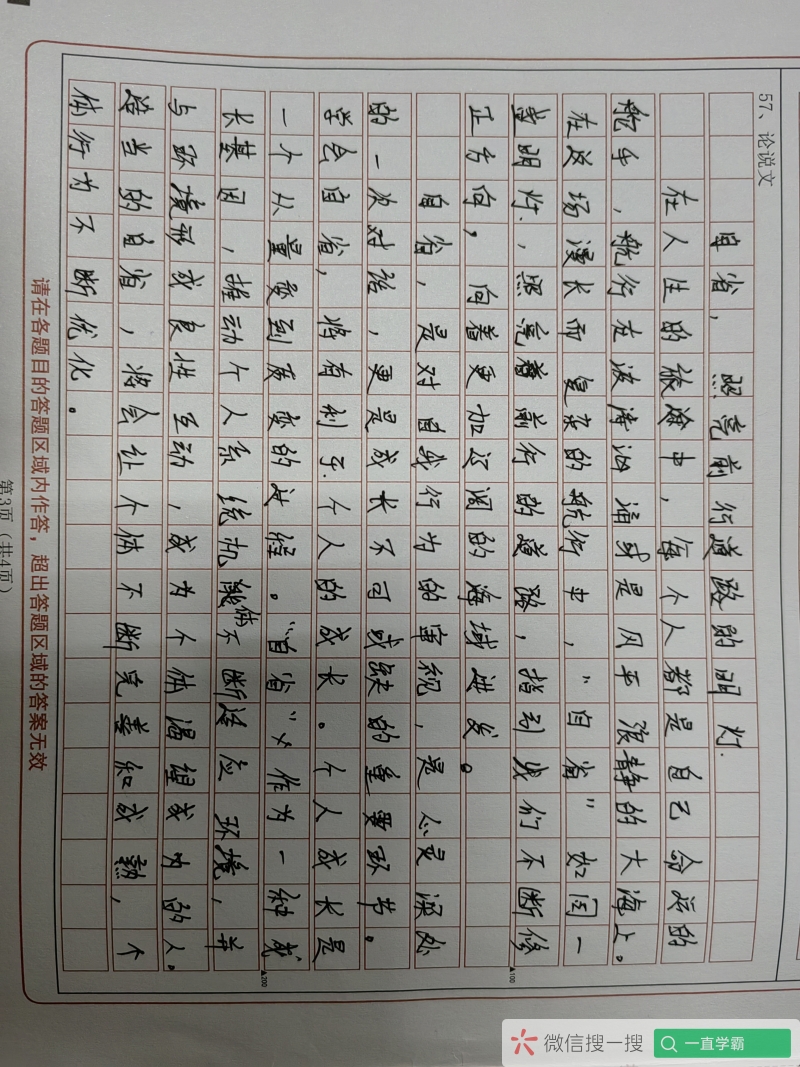 57、论说文
自省，照亮前行道路的明灯.
在人生的旅途中，每个人都是自己命运的
舵手，航行在波涛汹涌或是风平浪静的大海上。
在这场漫长而复杂的航行中，"自省"如同一
盏明灯，照亮着前行的道路，指引我们不断修
正方向，向着更加辽阔的海域进发。
自省，是对自我行为的审视，是心灵深处
的一次对话，更是成长不可或缺的重要环节。
学会自省，将有利于个人的成长。个人成长是
一个从量变到质变的过程。"自省"作为一种成
长基因，推动个人系统机体不断适应环境，并
与环境形成良性互动，成为个体
的人。
适当的自省，将会让个体不断完善和成熟，个
体行为不断优化。
▲100
▲200
请在各题目的答题区域内作答，超出答题区域的答案无效
第3页（共4页）
微信搜一搜
一直学霸